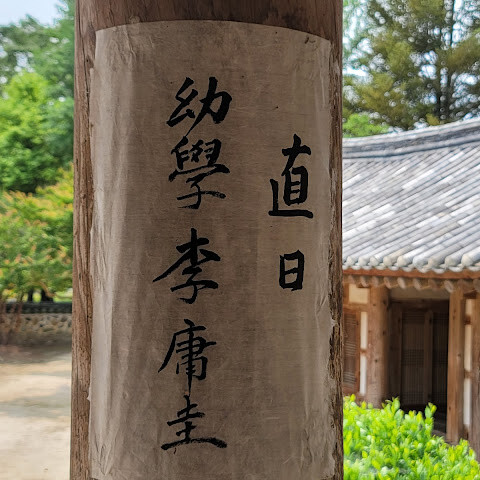 直日
幼學李庸圭